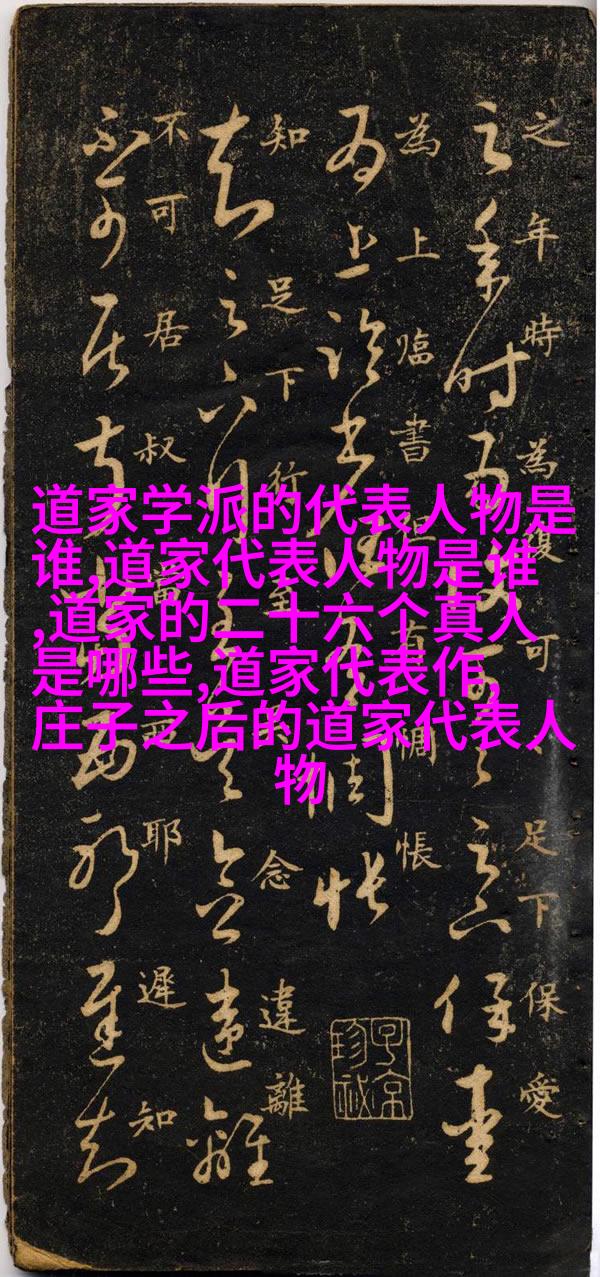 道家学派的代表人物是
谁,道家代表人物是谁
,道家的二十六个真人
是哪些,道家代表作,
庄子之后的道家代表人
物
之年時為復可足下保愛
為上臨書但有惆悵
知足下行至吳念違離
不可居叔當西耶遲知
子京珍秘